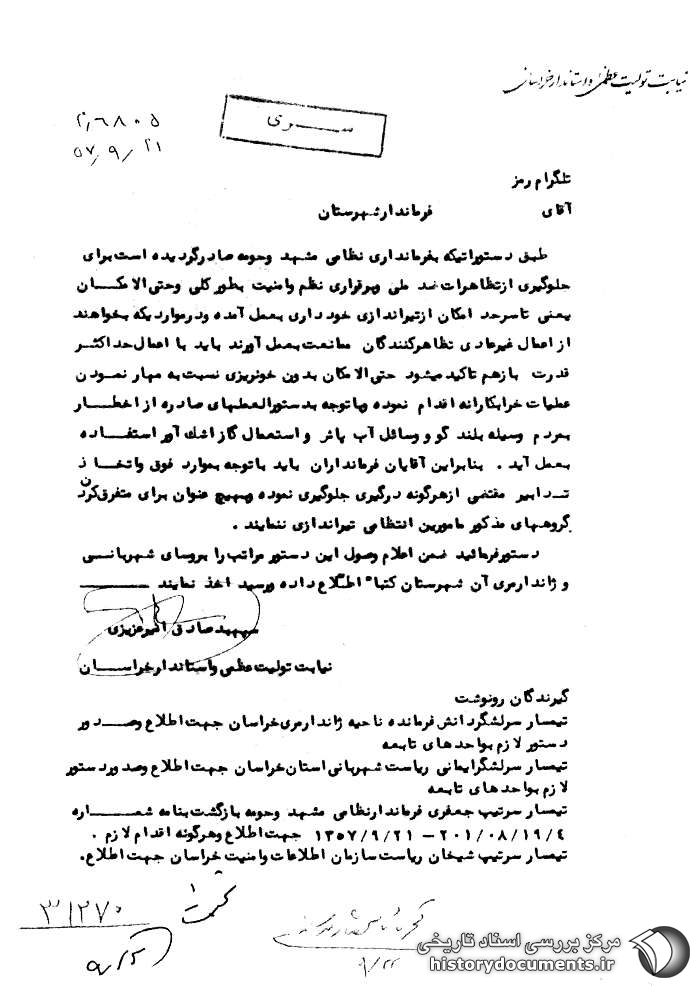 نیابت تولیت عظمی و استاندار خراسان
سری
۲۰۶۸۰۵
۵۷/۹/۲۱
تلگرام رمز
آقای فرماندار شهرستان
طبق دستوراتیکه بفرمانداری نظامی مشهد وحومه صادرگردیده است برای
جلوگیری ازتظاهرات ضد ملی وبرقراری نظم وامنیت بطورکلی وحتی الامکان
یعنی تاسرحد امکان ازتیراندازی خودداری بعمل آمده ودرمواردیکه بخواهند
از اعمال غیرعادی تظاهرکنندگان ممانعت بعمل آورند باید با اعمال حداکثر
قدرت بازهم تاکید میشود حتی الامکان بدون خونریزی نسبت به مهار نمودن
عملیات خرابکارانه اقدام نموده وباتوجه بدستورالعملهای صادره از اخطار
بمردم وسیله بلند گو و وسائل آب پاش و استعمال گاز اشک آور استفاده
بعمل آید . بنابراین آقایان فرمانداران باید باتوجه بموارد فوق واتخاذ
تدابیر مقتضی ازهرگونه درگیری جلوگیری نموده وبهیچ عنوان برای متفرق کردن
گروههای مذکور مامورین انتظامی تیراندازی ننمایند .
دستورفرمائید ضمن اعلام وصول این دستور مراتب را بروسای شهربانی
و ژاندارمری آن شهرستان کتبا" اطلاع داده ورسید اخذ نمایند
سپهبد صادق امیرعزیزی
نیابت تولیت عظمی واستاندارخراسان
گیرندگان رونوشت
تیمسار سرلشگر دانش فرمانده ناحیه ژاندارمری خراسان جهت اطلاع وصدور
دستور لازم بواحدهای تابعه
تیمسار سرلشگر ایمانی ریاست شهربانی استان خراسان جهت اطلاع وصدوردستور
لازم بواحدهای تابعه
تیمسار سرتیپ جعفری فرماندارنظامی مشهد وحومه بازگشت بنامه شماره
۲۰۱/۰۸/۱۹/۴ – ۱۳۵۷/۹/۲۱ جهت اطلاع وهرگونه اقدام لازم .
تیمسار سرتیپ شیخان ریاست سازمان اطلاعات وامنیت خراسان جهت اطلاع.
۳۱۲۷۰
۹/۲۲
مرکز بررسی اسناد تاریخی
historydocuments.ir